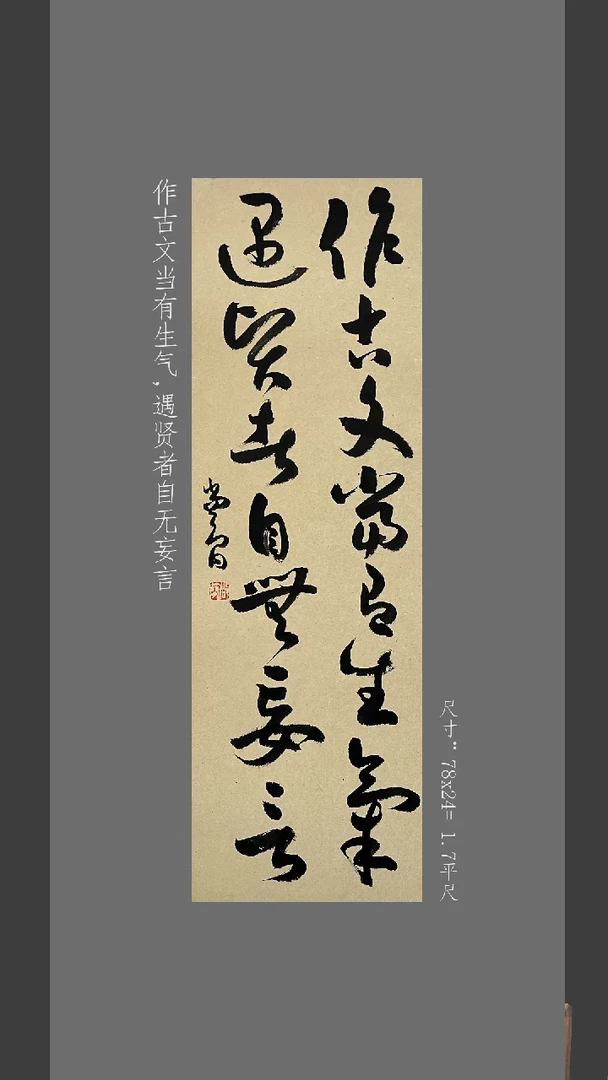 作古文當有生氣
遇賢者自無妄言
作古文当有生气,遇贤者自无妄言
尺寸:78x24=1.7平尺